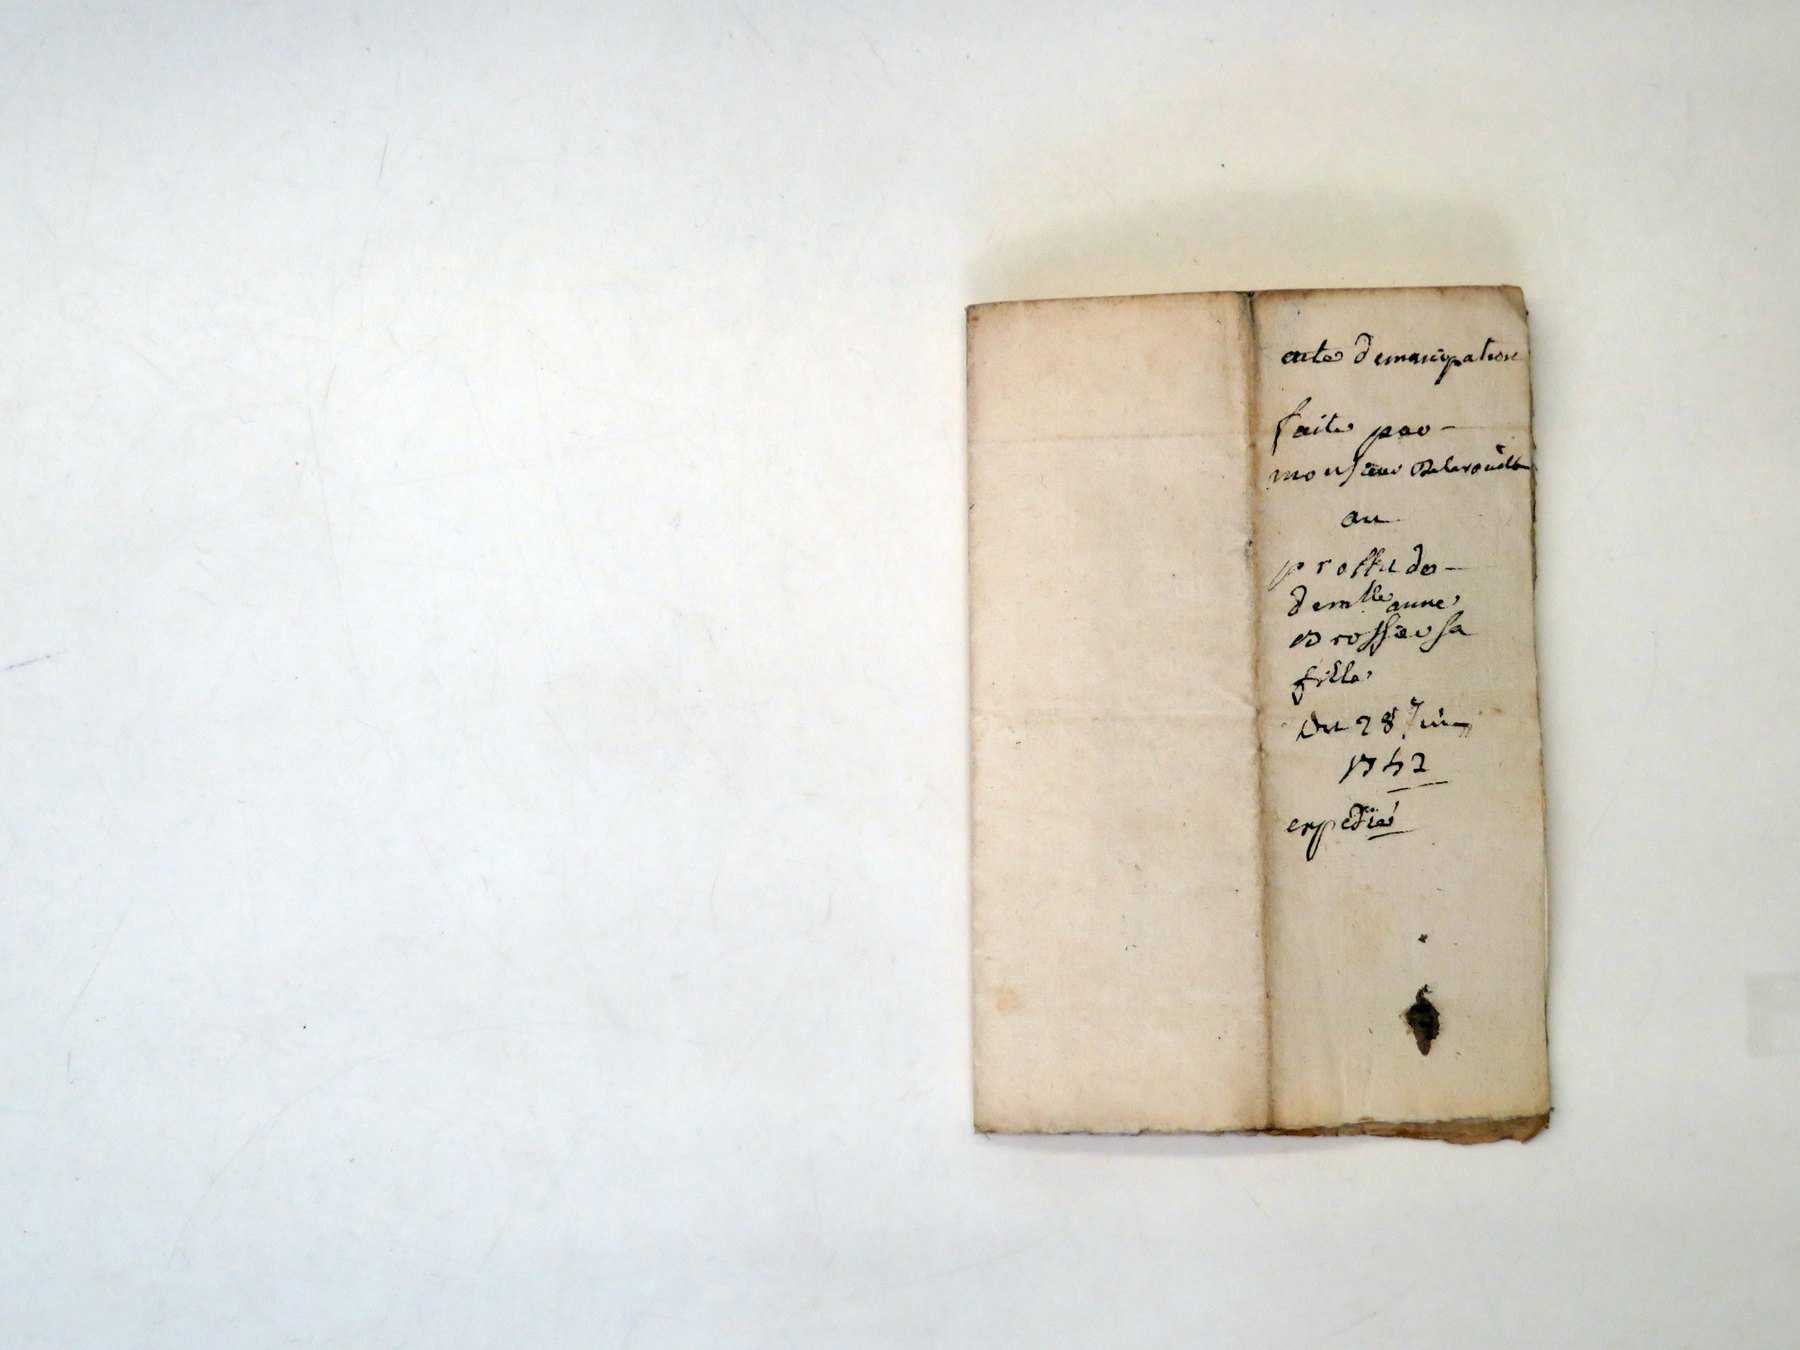 acte demancipation
faite par
monsieur Delarouill
au
proffit de
demlle anne
Brossier sa
fille
Du 28 Juin
1742
expedié